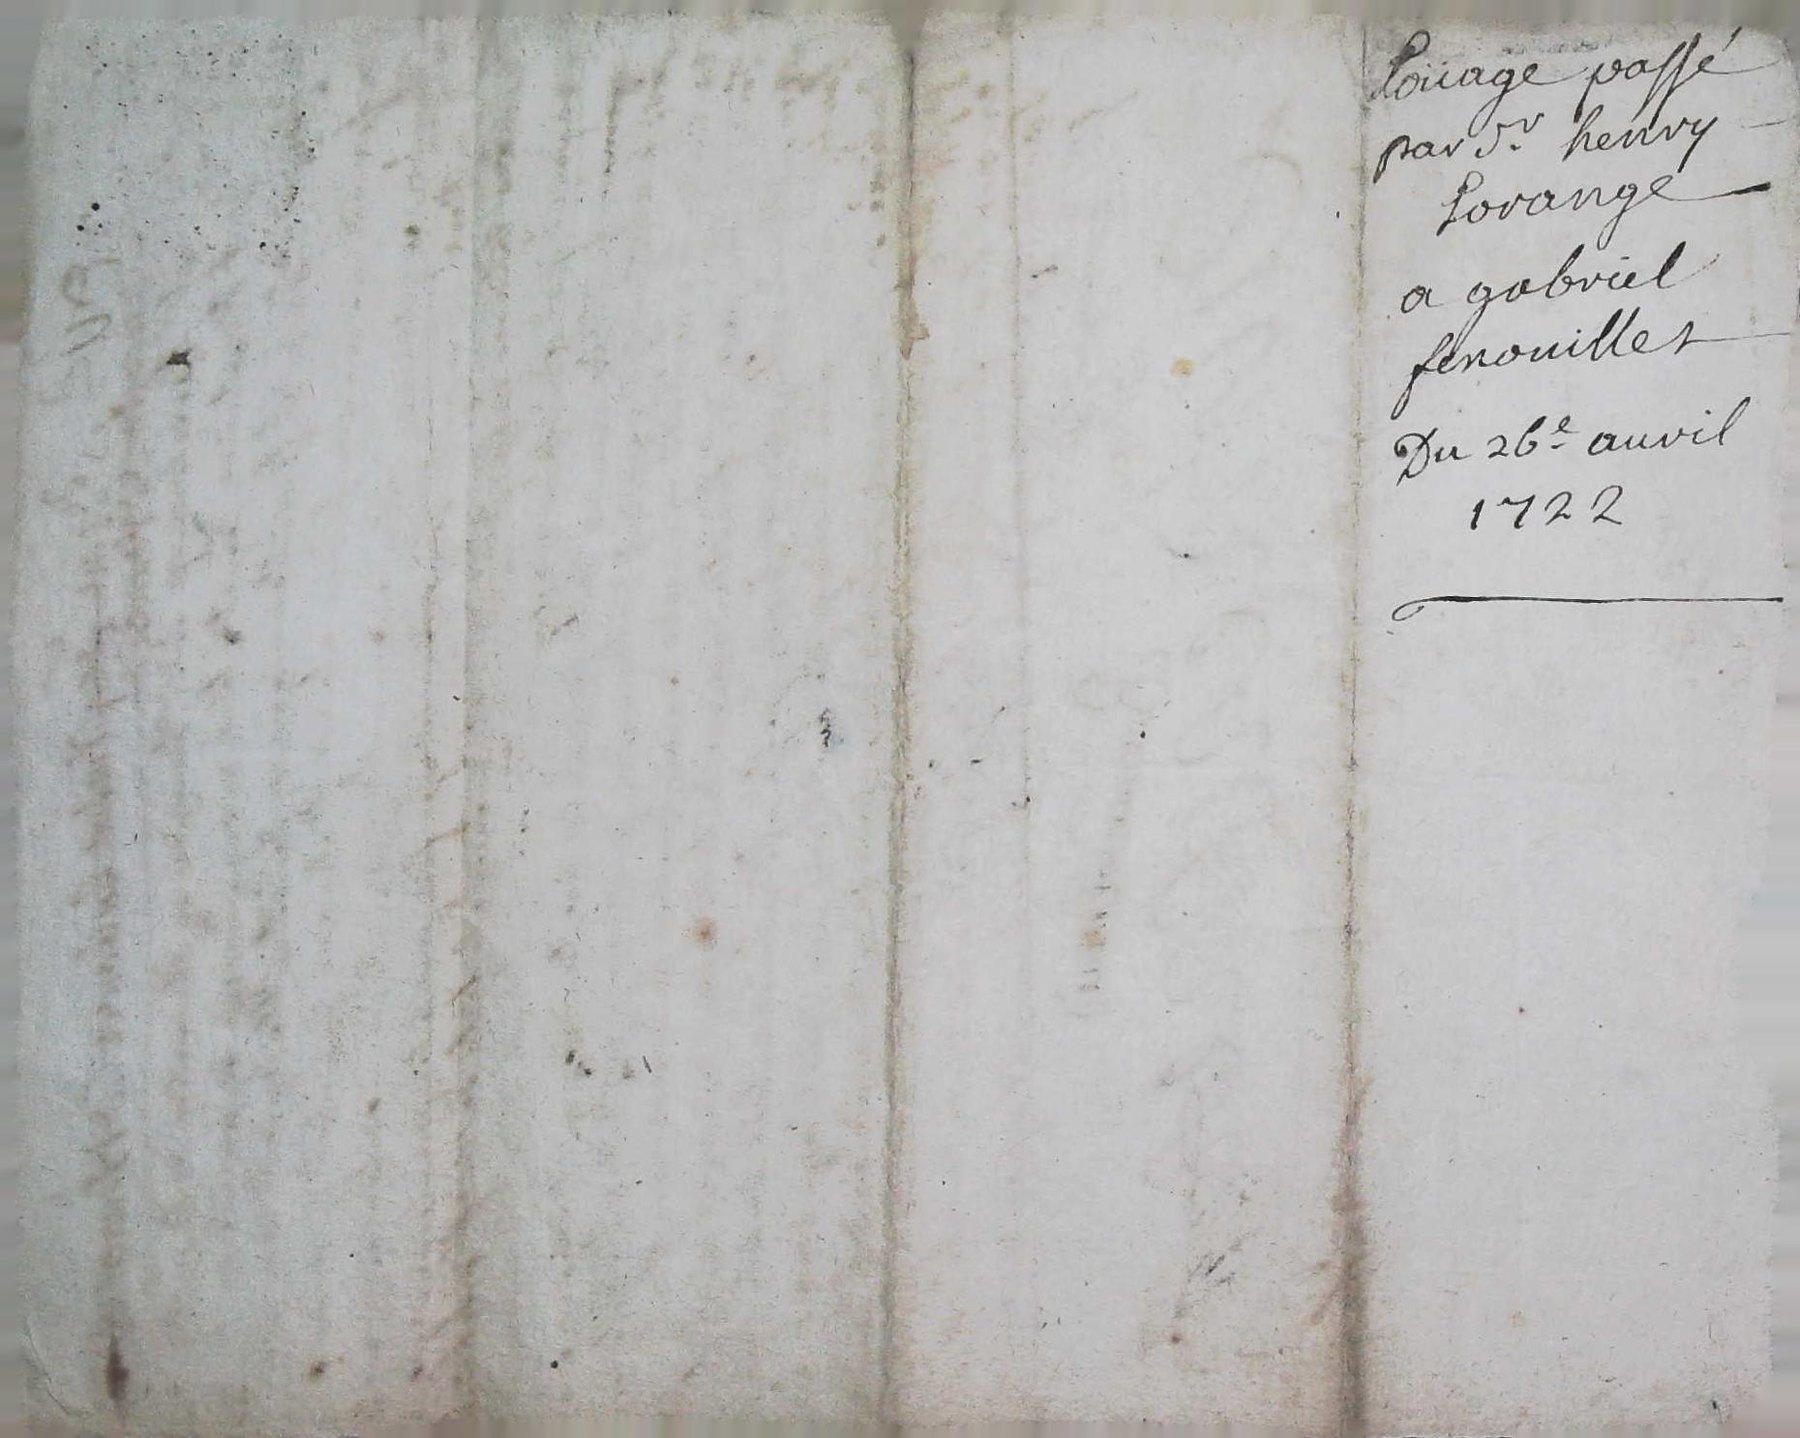 Loüage passé
par Sr. henry
Lorange
a gabriel
fenouillet
Du 26e auvril
1722